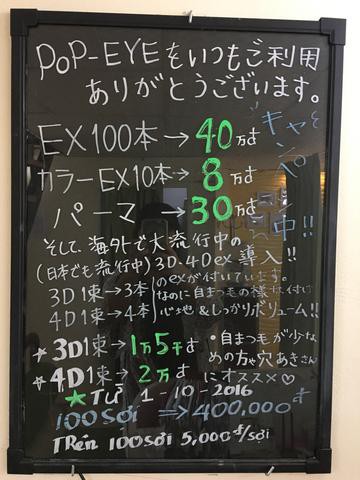 POP-EYEをいつもご利用
ありがとうございます。
EX100本→40万す
カラーEX10本→8万す
パーマ→30万す
キャンペーン中!!
そして、海外で大流行中の
(日本でも流行中)3D・4Dex導入!!
3D1束→3本
4D1束→4本
のexが付いています。
なのに自まつ毛の様な付け
心地&しっかりボリューム!!
★3D1束→1万5千す
★4D1束→2万す
・自まつ毛が少なめの方や穴あきさん
にオススメ♡
★TỪ 1-10-2016
100SỢI ⇒400,000đ
TRÊN 100SỢI 5,000đ/SỢI